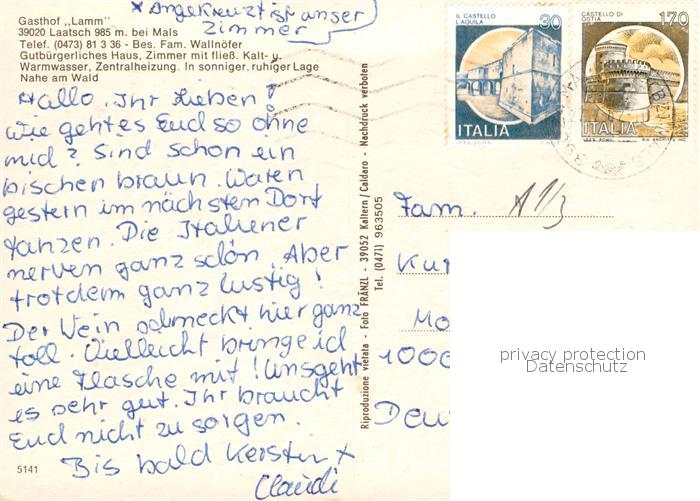 x Angekreuzt ist unser
Zimmer
Gasthof „Lamm"
39020 Laatsch 985 m. bei Mals
Telef. (0473) 81 3 36 - Bes. Fam. Wallnöfer
Gutbürgerliches Haus, Zimmer mit fließ. Kalt- u.
Warmwasser, Zentralheizung. In sonniger, ruhiger Lage
Nahe am Wald
Hallo, Ihr Lieben!
Wie geht es Euch so ohne
mich? Sind schon ein
bischen braun. Waren
gestern im nächsten Dorf
tanzen. Die Italiener
nerven ganz schön. Aber
trotdem ganz lustig!
Der Wein schmeckt hier ganz
toll. Vielleicht bringe ich
eine Flasche mit! Uns geht
es sehr gut. Ihr braucht
Euch nicht zu sorgen.
Bis bald Kerstin +
Claudi
5141
Riproduzione vietata - Foto FRÄNZL - 39052 Kaltern/Caldaro - Nachdruck verboten
Tel. (0471) 963505
IL CASTELLO
L'AQUILA
30
ITALIA
CASTELLO DI
OSTIA
170
ITALIA
Fam.
Kur
Mo
1000
Deu
privacy protection
Datenschutz